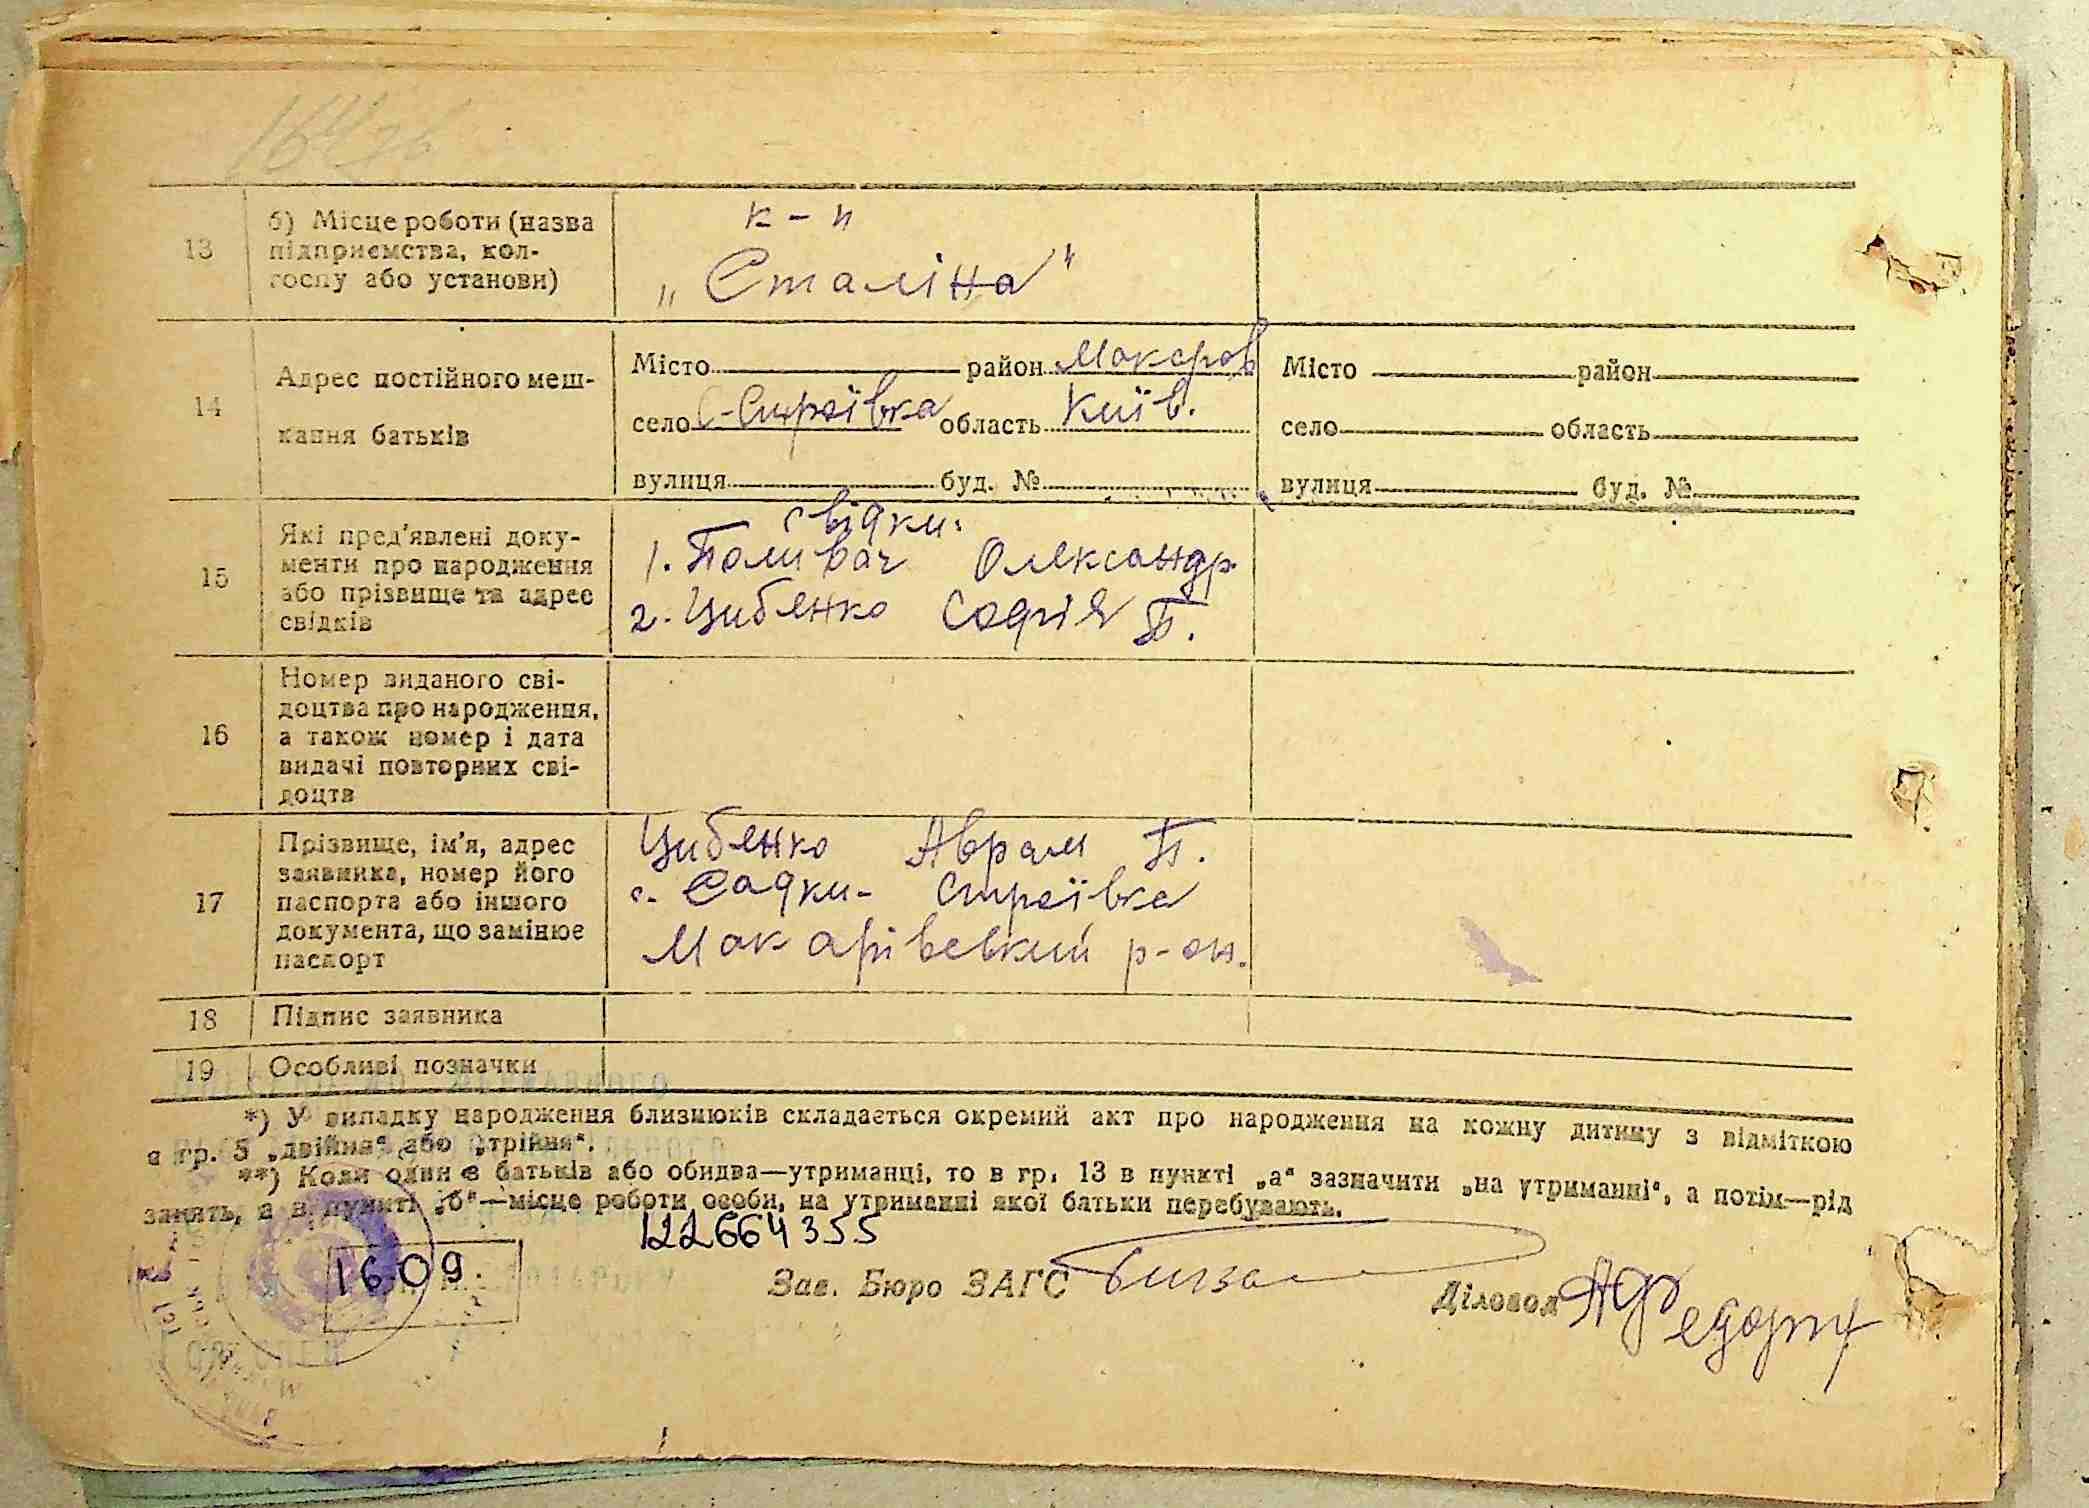 13
б) Місце роботи (назва
підприємства, кол-
госпу або установи)
к-п
„Сталіна"
14
Адрес постійного меш-
кання батьків
Місто район Макаров
село С-Строївка область Київ.
вулиця буд. №
Місто район
село область
вулиця буд. №
15
Які пред'явлені доку-
менти про народження
або прізвище та адрес
свідків
свідки:
1. Поливач Олександр
2. Цибенко Софія П.
16
Номер виданого сві-
доцтва про народження,
а також номер і дата
видачі повторних сві-
доцтв
17
Прізвище, ім'я, адрес
заявника, номер його
паспорта або іншого
документа, що замінює
паспорт
Цибенко Аврам П.
с. Садки-Строївка
Макарівський р-он.
18 Підпис заявника
19 Особливі позначки
*) У випадку народження близнюків складається окремий акт про народження на кожну дитину з відміткою
в гр. 5 „двійня" або „трійня".
**) Коли один з батьків або обидва—утриманці, то в гр. 13 в пункті „а" зазначити „на утриманні", а потім—рід
занять, а в пункті „б"—місце роботи особи, на утриманні якої батьки перебувають.
122664355
1609
Зав. Бюро ЗАГС
Діловод